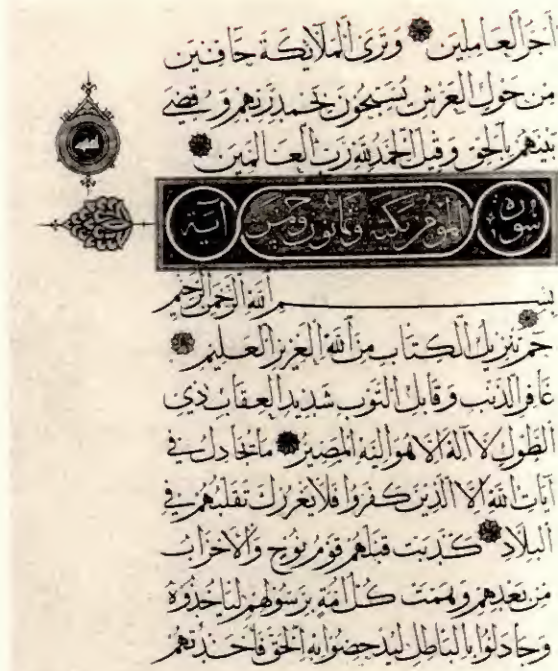 أَجْرُ الْعَامِلِينَ وَتَرَى الْمَلَائِكَةَ حَافِّينَ
مِنْ حَوْلِ الْعَرْشِ يُسَبِّحُونَ بِحَمْدِ رَبِّهِمْ وَقُضِيَ
بَيْنَهُمْ بِالْحَقِّ وَقِيلَ الْحَمْدُ لِلَّهِ رَبِّ الْعَالَمِينَ
سورة المؤمن مكية وثمانون وخمس آية
بِسْمِ اللَّهِ الرَّحْمَنِ الرَّحِيمِ
حم تَنْزِيلُ الْكِتَابِ مِنَ اللَّهِ الْعَزِيزِ الْعَلِيمِ
غَافِرِ الذَّنْبِ وَقَابِلِ التَّوْبِ شَدِيدِ الْعِقَابِ ذِي
الطَّوْلِ لَا إِلَهَ إِلَّا هُوَ إِلَيْهِ الْمَصِيرُ مَا يُجَادِلُ فِي
آيَاتِ اللَّهِ إِلَّا الَّذِينَ كَفَرُوا فَلَا يَغْرُرْكَ تَقَلُّبُهُمْ فِي
الْبِلَادِ كَذَّبَتْ قَبْلَهُمْ قَوْمُ نُوحٍ وَالْأَحْزَابُ
مِنْ بَعْدِهِمْ وَهَمَّتْ كُلُّ أُمَّةٍ بِرَسُولِهِمْ لِيَأْخُذُوهُ
وَجَادَلُوا بِالْبَاطِلِ لِيُدْحِضُوا بِهِ الْحَقَّ فَأَخَذْتُهُمْ